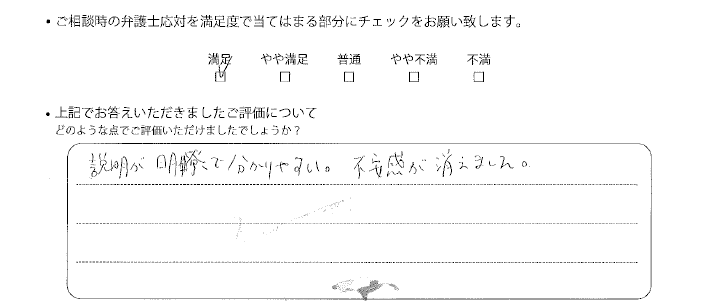 ・ご相談時の弁護士応対を満足度で当てはまる部分にチェックをお願い致します。
満足 やや満足 普通 やや不満 不満
・上記でお答えいただきましたご評価について
どのような点でご評価いただけましたでしょうか？
説明が明瞭で分かりやすい。不安感が消えました。